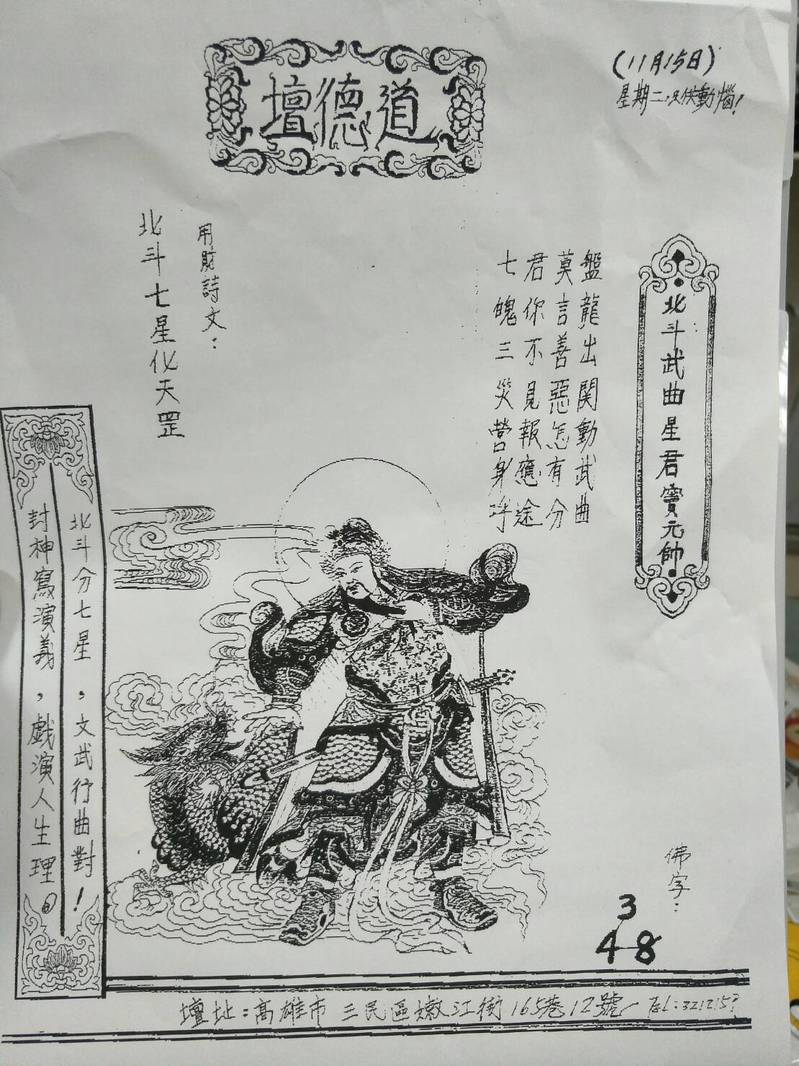 道德壇
(11月15日)
星期二,快動惱!
北斗武曲星君竇元帥
盤龍出関動武曲
莫言善惡怎有分
君你不見報應途
七魄三災營身呼
用財詩文:
北斗七星化天罡
北斗分七星,文武行曲對!
封神寫演義,戲演人生理。
佛字:
3
48
壇址:高雄市三民區嫩江街165巷12號